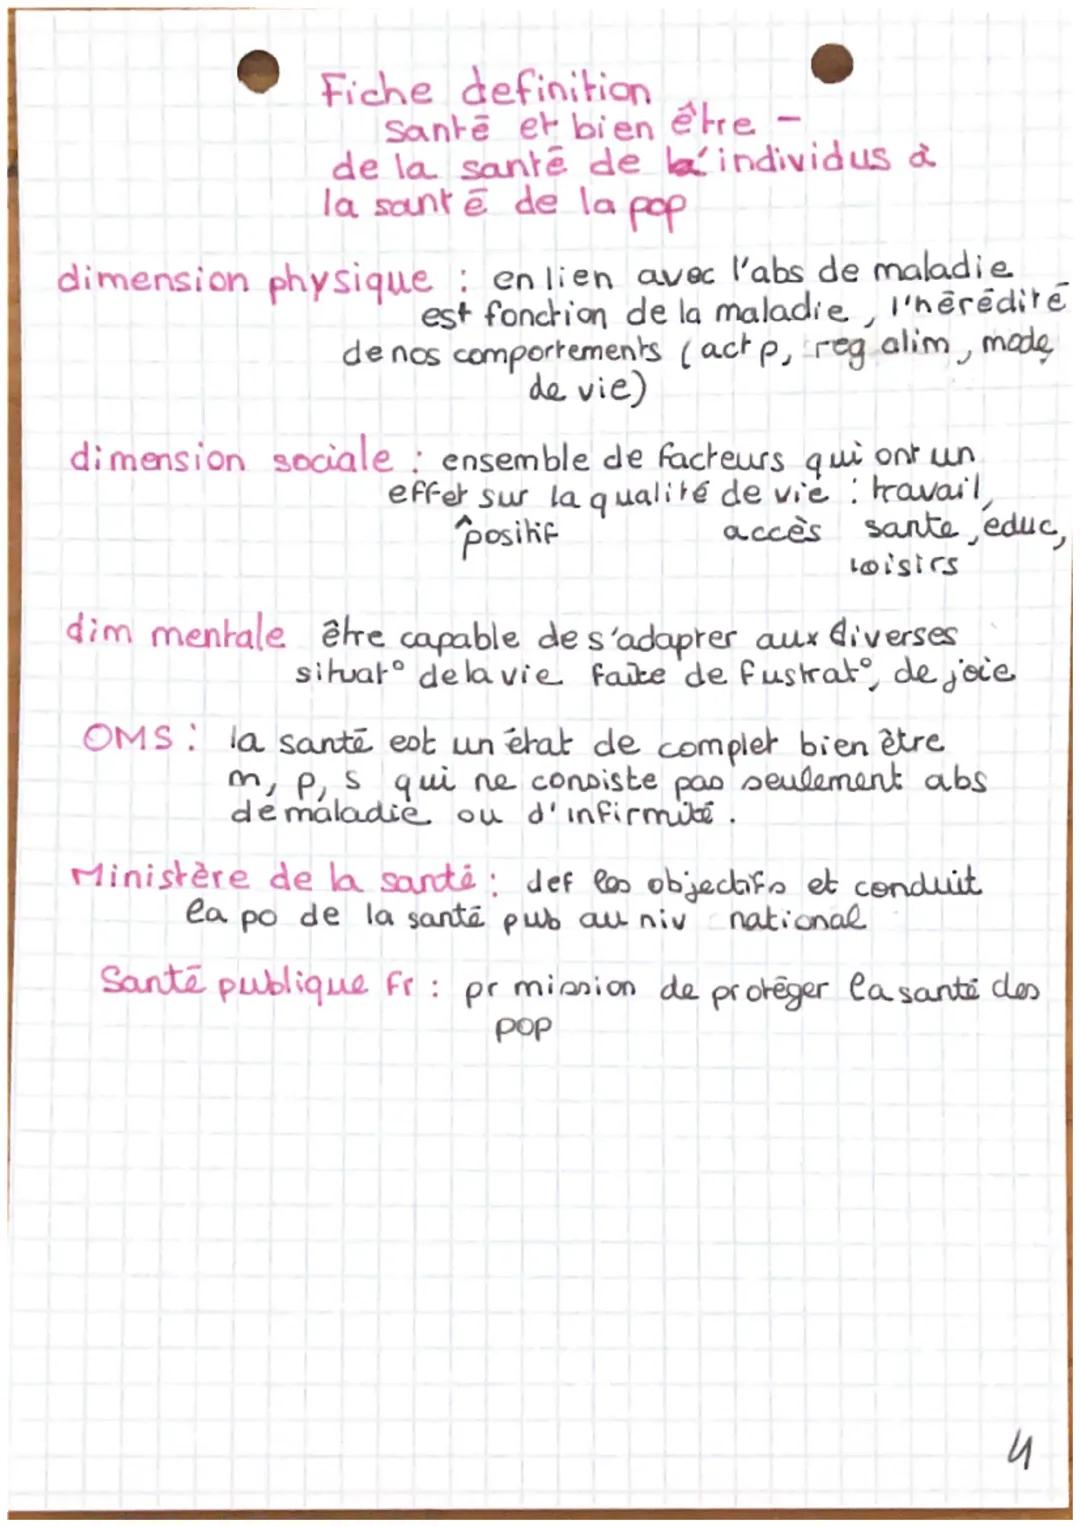 Fiche definition
santé et bien être -
de la santé de l'individus à
la santé de la pop
dimension physique : en lien avec l'abs de maladie
est fonction de la maladie, l'hérédité
de nos comportements (act p, reg alim, mode
de vie)
dimension sociale : ensemble de facteurs qui ont un
effet sur la qualité de vie : travail,
^positif accès sante, éduc,
loisirs
dim mentale être capable de s'adapter aux diverses
situat° de la vie faite de fustrat°, de joie
OMS : la santé est un état de complet bien être
m, p, s qui ne consiste pas seulement abs
de maladie ou d'infirmité.
Ministère de la santé : def les objectifs et conduit
la po de la santé pub au niv national
Santé publique Fr : pr mission de protéger la santé des
pop
4